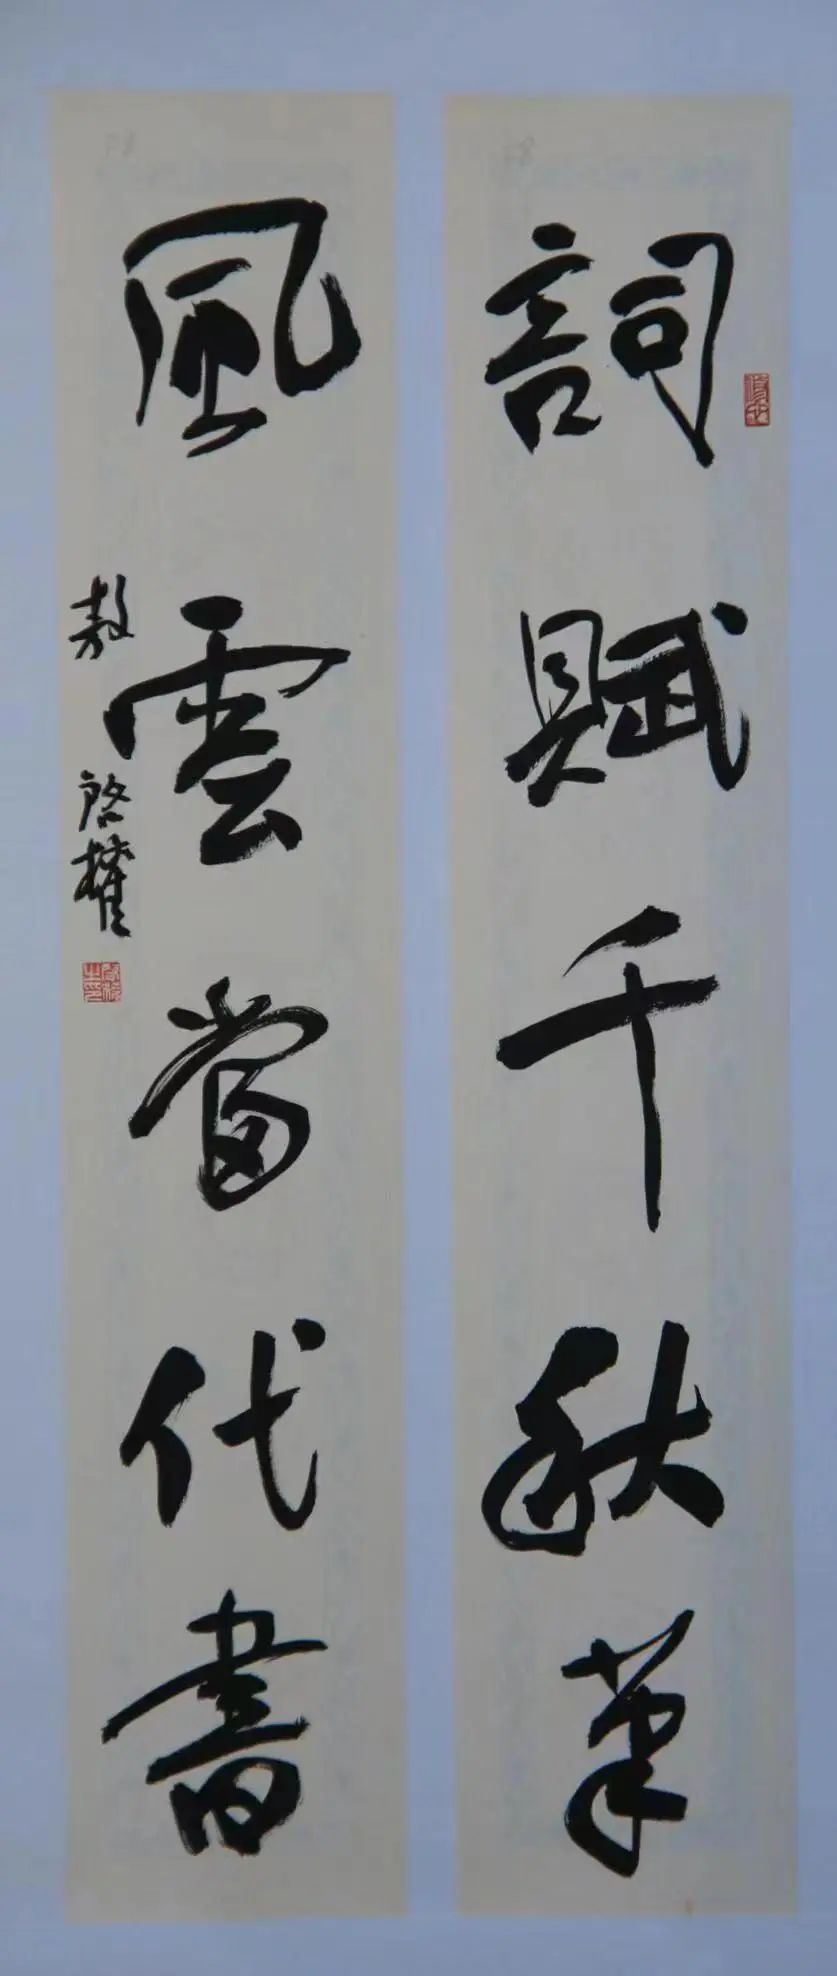 詞賦千秋筆
風雲當代書
敖啓權